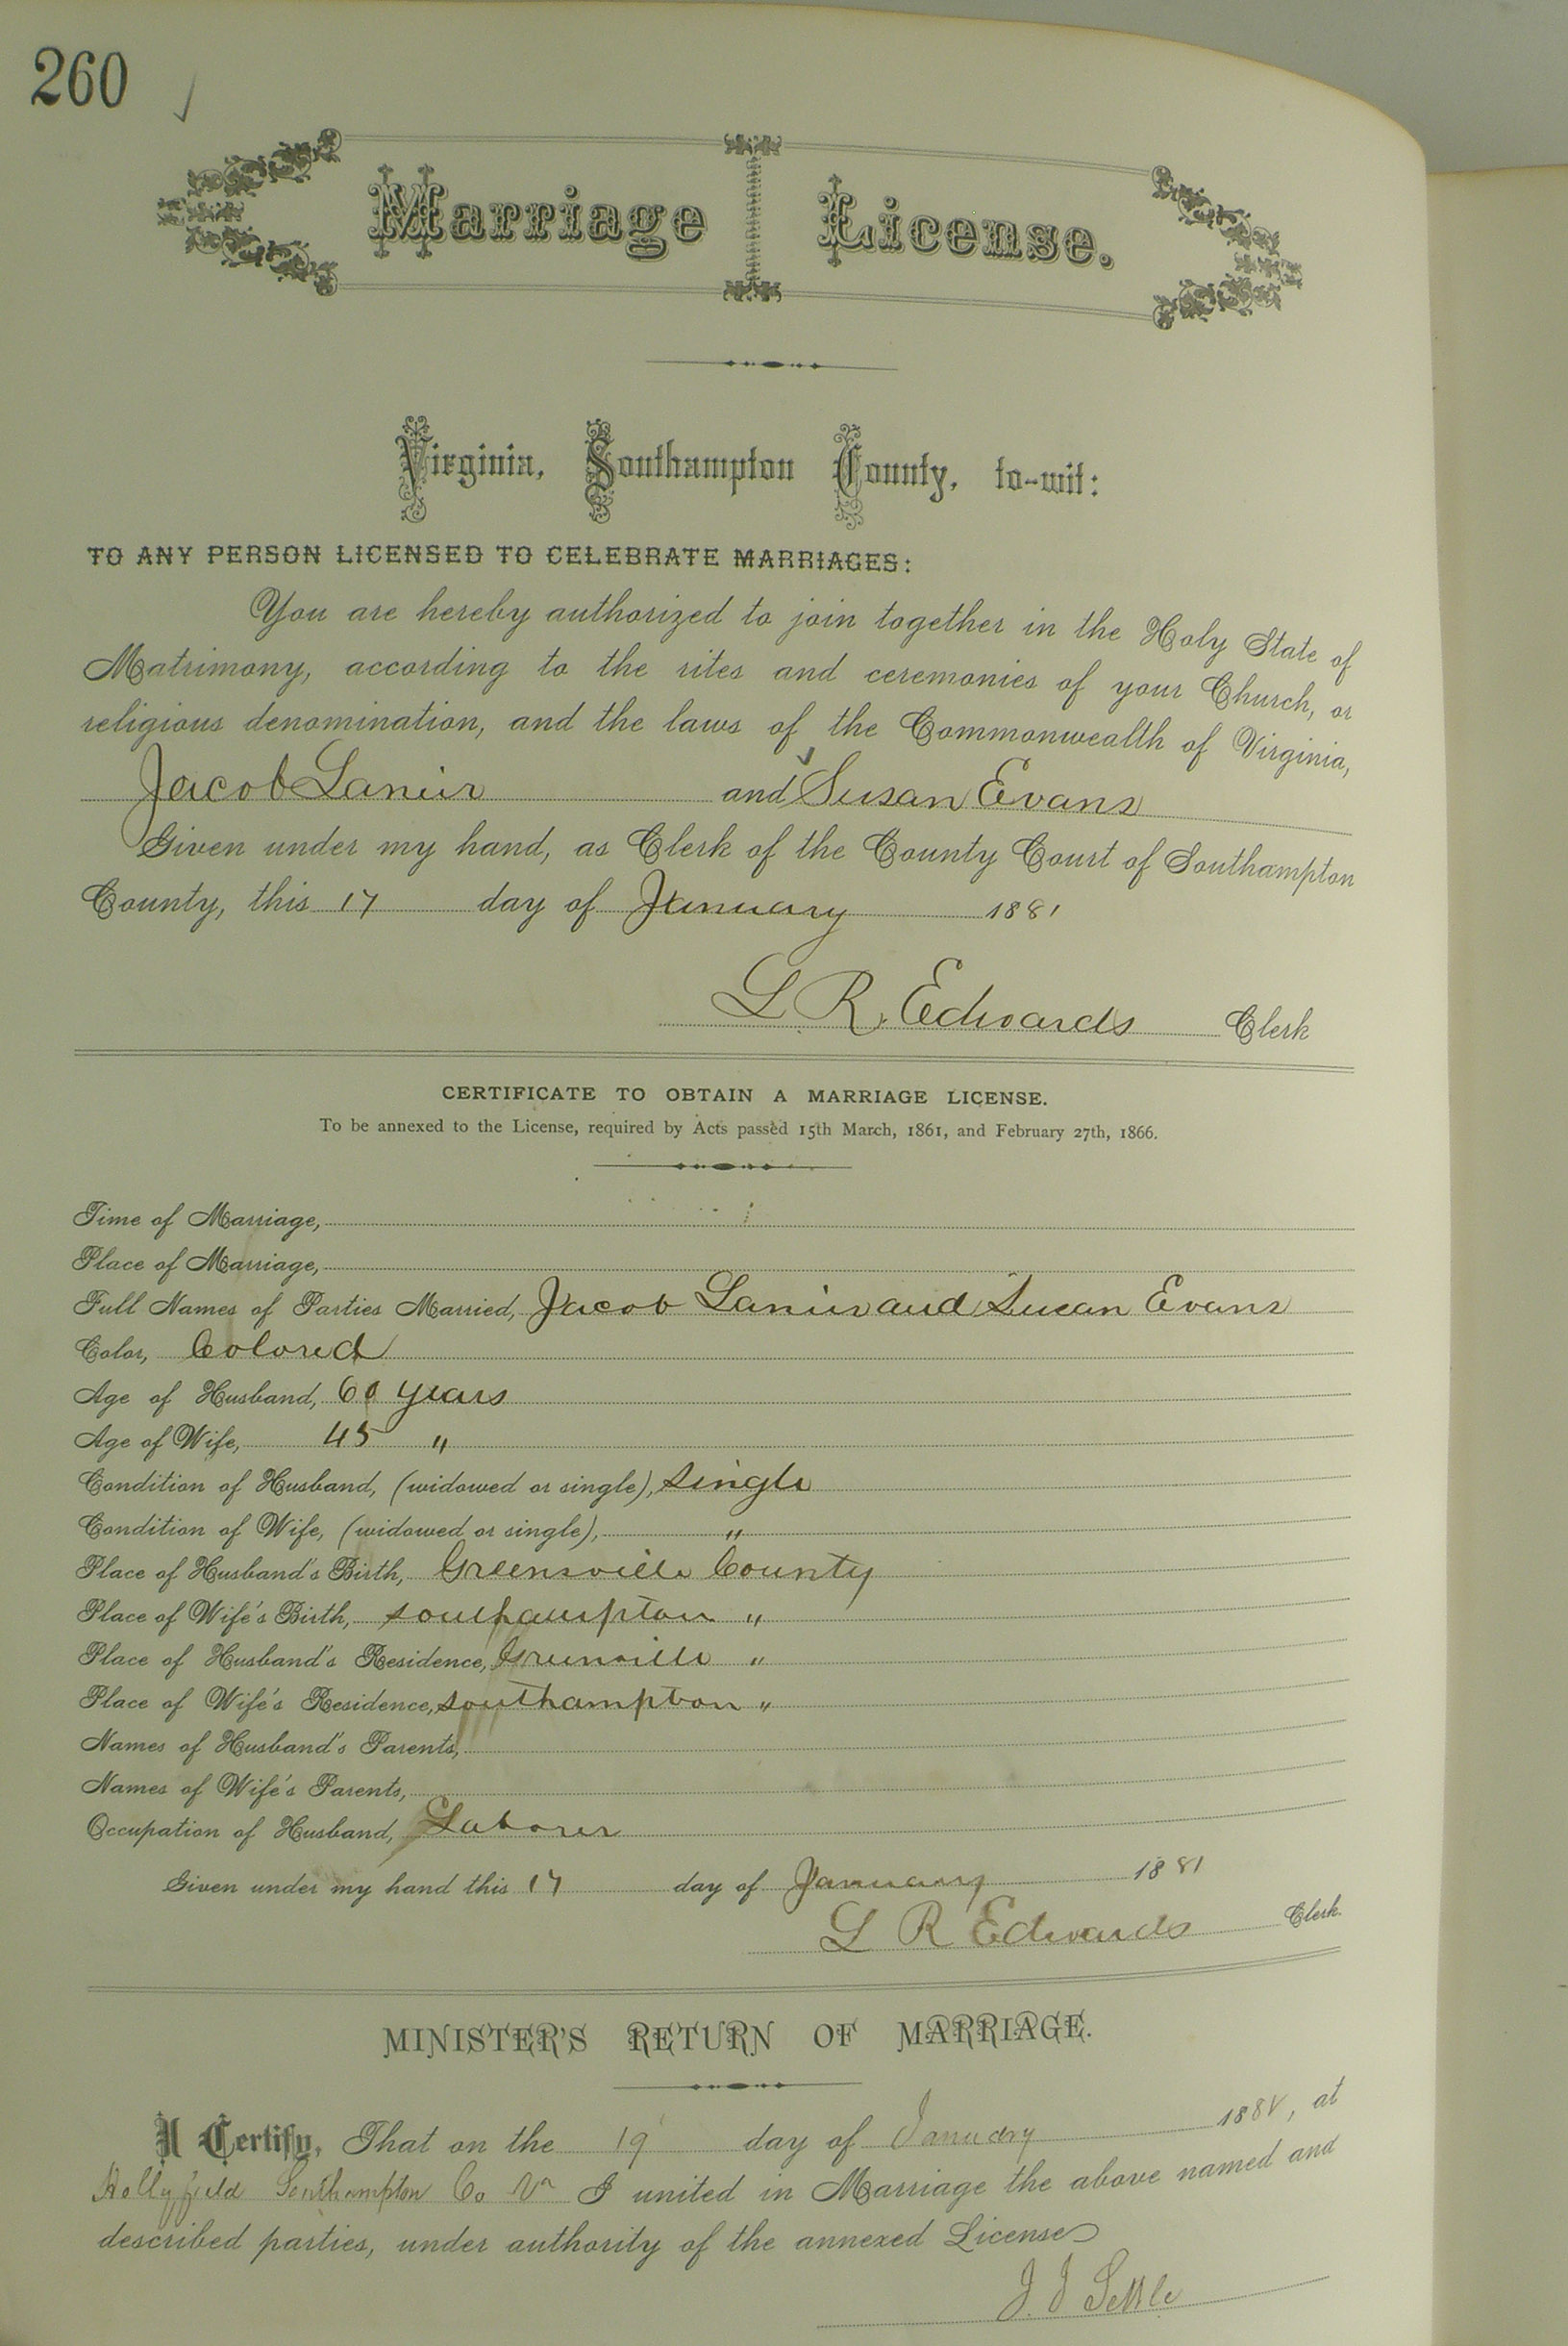 260
Marriage License.
Virginia, Southampton County, to-wit:
TO ANY PERSON LICENSED TO CELEBRATE MARRIAGES:
You are hereby authorized to join together in the Holy State of
Matrimony, according to the rites and ceremonies of your Church, or
religious denomination, and the laws of the Commonwealth of Virginia,
Jacob Lanier and Susan Evans
Given under my hand, as Clerk of the County Court of Southampton
County, this 17 day of January 1881
L R. Edwards Clerk
CERTIFICATE TO OBTAIN A MARRIAGE LICENSE.
To be annexed to the License, required by Acts passed 15th March, 1861, and February 27th, 1866.
Time of Marriage,
Place of Marriage,
Full Names of Parties Married, Jacob Lanier and Susan Evans
Color, Colored
Age of Husband, 60 years
Age of Wife, 45 "
Condition of Husband, (widowed or single), single
Condition of Wife, (widowed or single), "
Place of Husband's Birth, Greensville County
Place of Wife's Birth, Southampton "
Place of Husband's Residence, Greensville "
Place of Wife's Residence, Southampton "
Names of Husband's Parents,
Names of Wife's Parents,
Occupation of Husband, Laborer
Given under my hand this 17 day of January 1881
L R Edwards Clerk.
MINISTER'S RETURN OF MARRIAGE.
I Certify, That on the 19 day of January 188, at
Hollyfield Southampton Co Va I united in Marriage the above named and
described parties, under authority of the annexed License
J. J Settle